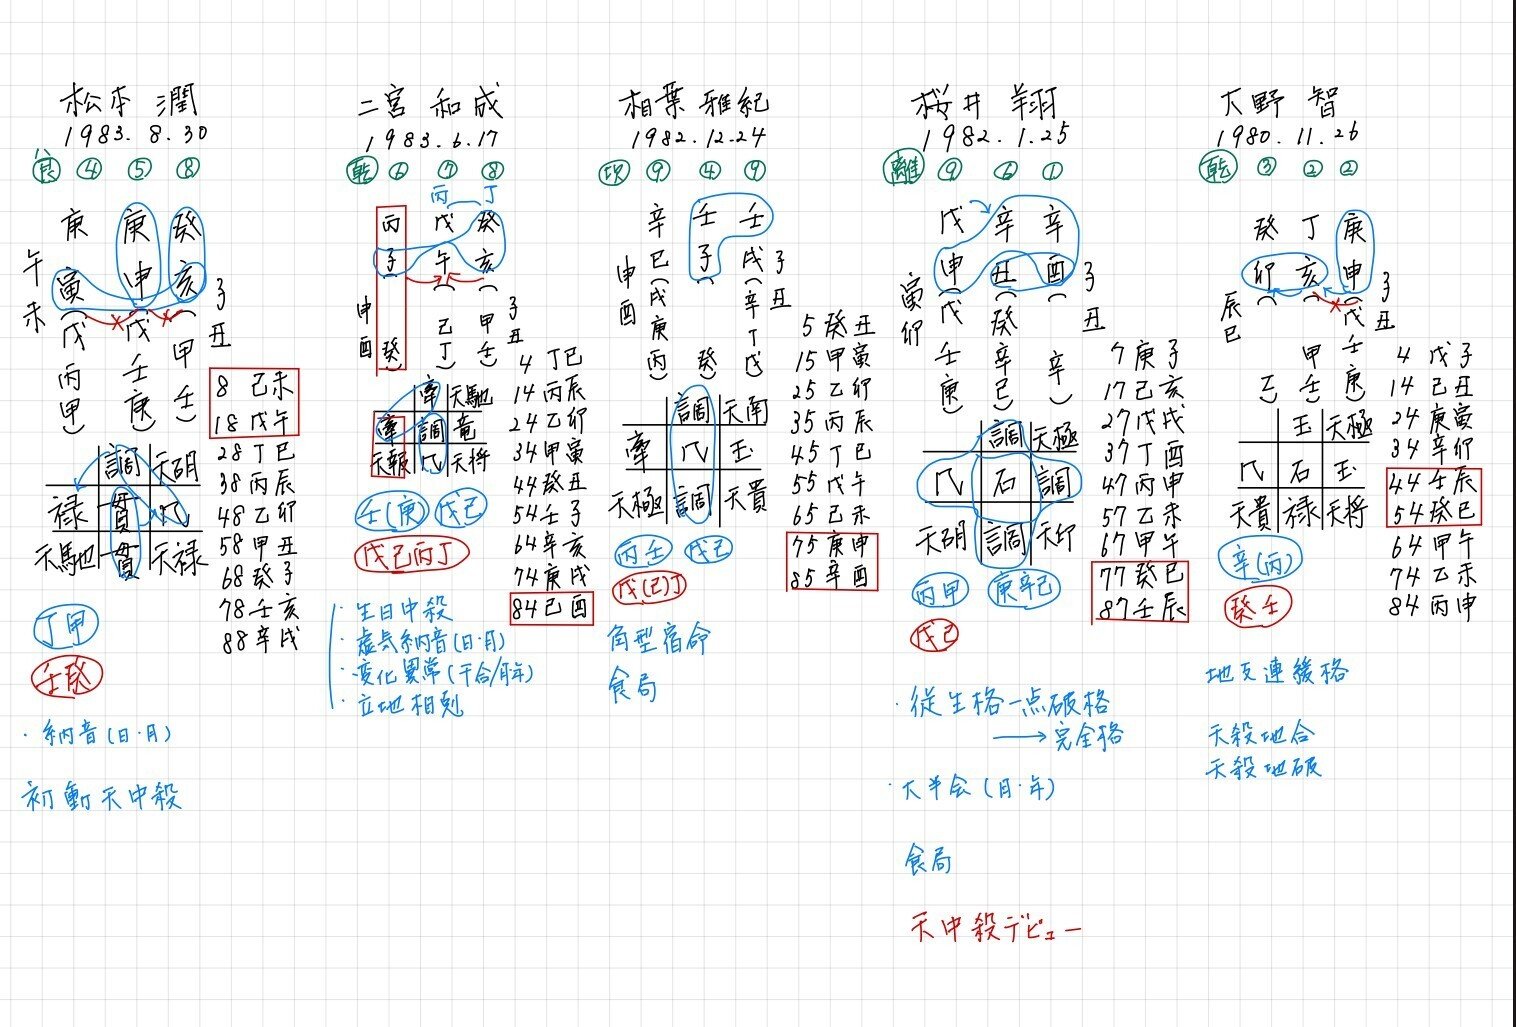 松本 潤
1983. 8. 30
艮 ④ ⑤ ⑧
庚 庚 癸
午未 寅 申 亥 子丑
戊 戊 甲
丙 壬 壬
甲 庚
8 己未
18 戊午
28 丁巳
38 丙辰
48 乙卯
58 甲丑
68 癸子
78 壬亥
88 辛戌
調 天胡
禄 貫
天馳 貫 天禄
丁甲
壬癸
・納音(日・月)
初動天中殺
二宮 和成
1983. 6. 17
乾 ⑥ ⑦ ⑧
丙 丁
丙 戊 癸
子 午 亥
申酉 子丑
癸 己 甲
丁 壬
牽 天馳
牽 調 竜
天報 天将
4 丁巳
14 丙辰
24 乙卯
34 甲寅
44 癸丑
54 壬子
64 辛亥
74 庚戌
84 己酉
壬(庚) 戊己
戊己丙丁
・生日中殺
・虚気納音(日・月)
・変化異常(干合/月年)
・立地相剋
相葉 雅紀
1982. 12. 24
坎 ⑨ ④ ⑨
辛 壬 壬
申酉 巳 子 戌 子丑
戊 癸 辛
庚 丁
丙 戊
調 天南
牽 玉
天極 調 天貴
5 癸丑
15 甲寅
25 乙卯
35 丙辰
45 丁巳
55 戊午
65 己未
75 庚申
85 辛酉
丙壬 戊己
戊(己)丁
角型宿命
食局
桜井 翔
1982. 1. 25
離 ⑨ ⑥ ①
戊 辛 辛
寅卯 申 丑 酉 子丑
戊 癸 辛
壬 辛
庚 己
調 天極
石 調
天胡 調 天印
7 庚子
17 己亥
27 戊戌
37 丁酉
47 丙申
57 乙未
67 甲午
77 癸巳
87 壬辰
丙甲 庚辛己
戊己
・従生格一点破格
→完全格
・大半会(月・年)
食局
天中殺デビュー
大野 智
1980. 11. 26
乾 ③ ② ②
癸 丁 庚
辰巳 卯 亥 申 子丑
乙 甲 戊
壬 壬
庚
玉 天極
石 玉
天貴 禄 天将
4 戊子
14 己丑
24 庚寅
34 辛卯
44 壬辰
54 癸巳
64 甲午
74 乙未
84 丙申
辛(丙)
癸壬
地支連緩格
天殺地合
天殺地破